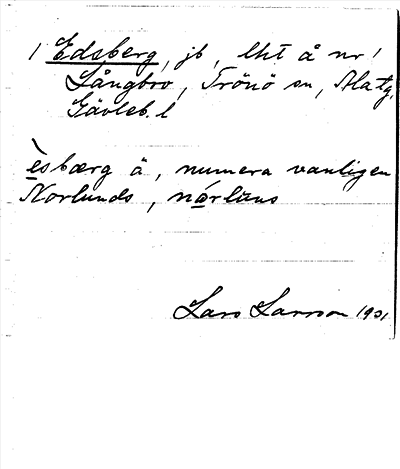 1 Edsberg, jb, lht å nr 1
Långbro, Trönö sn, Ala tg,
Gävleb. l
èsbærg å, numera vanligen
Norlunds, nárluns
Lars Larsson 1931